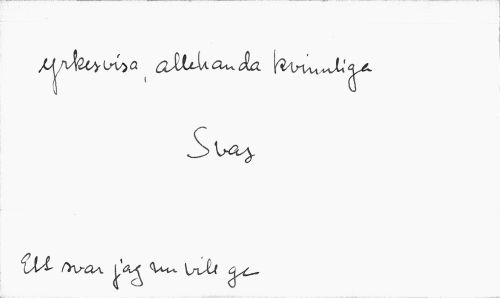 yrkesvisa, allehanda kvinnliga
Svar
Ett svar jag nu vill ge